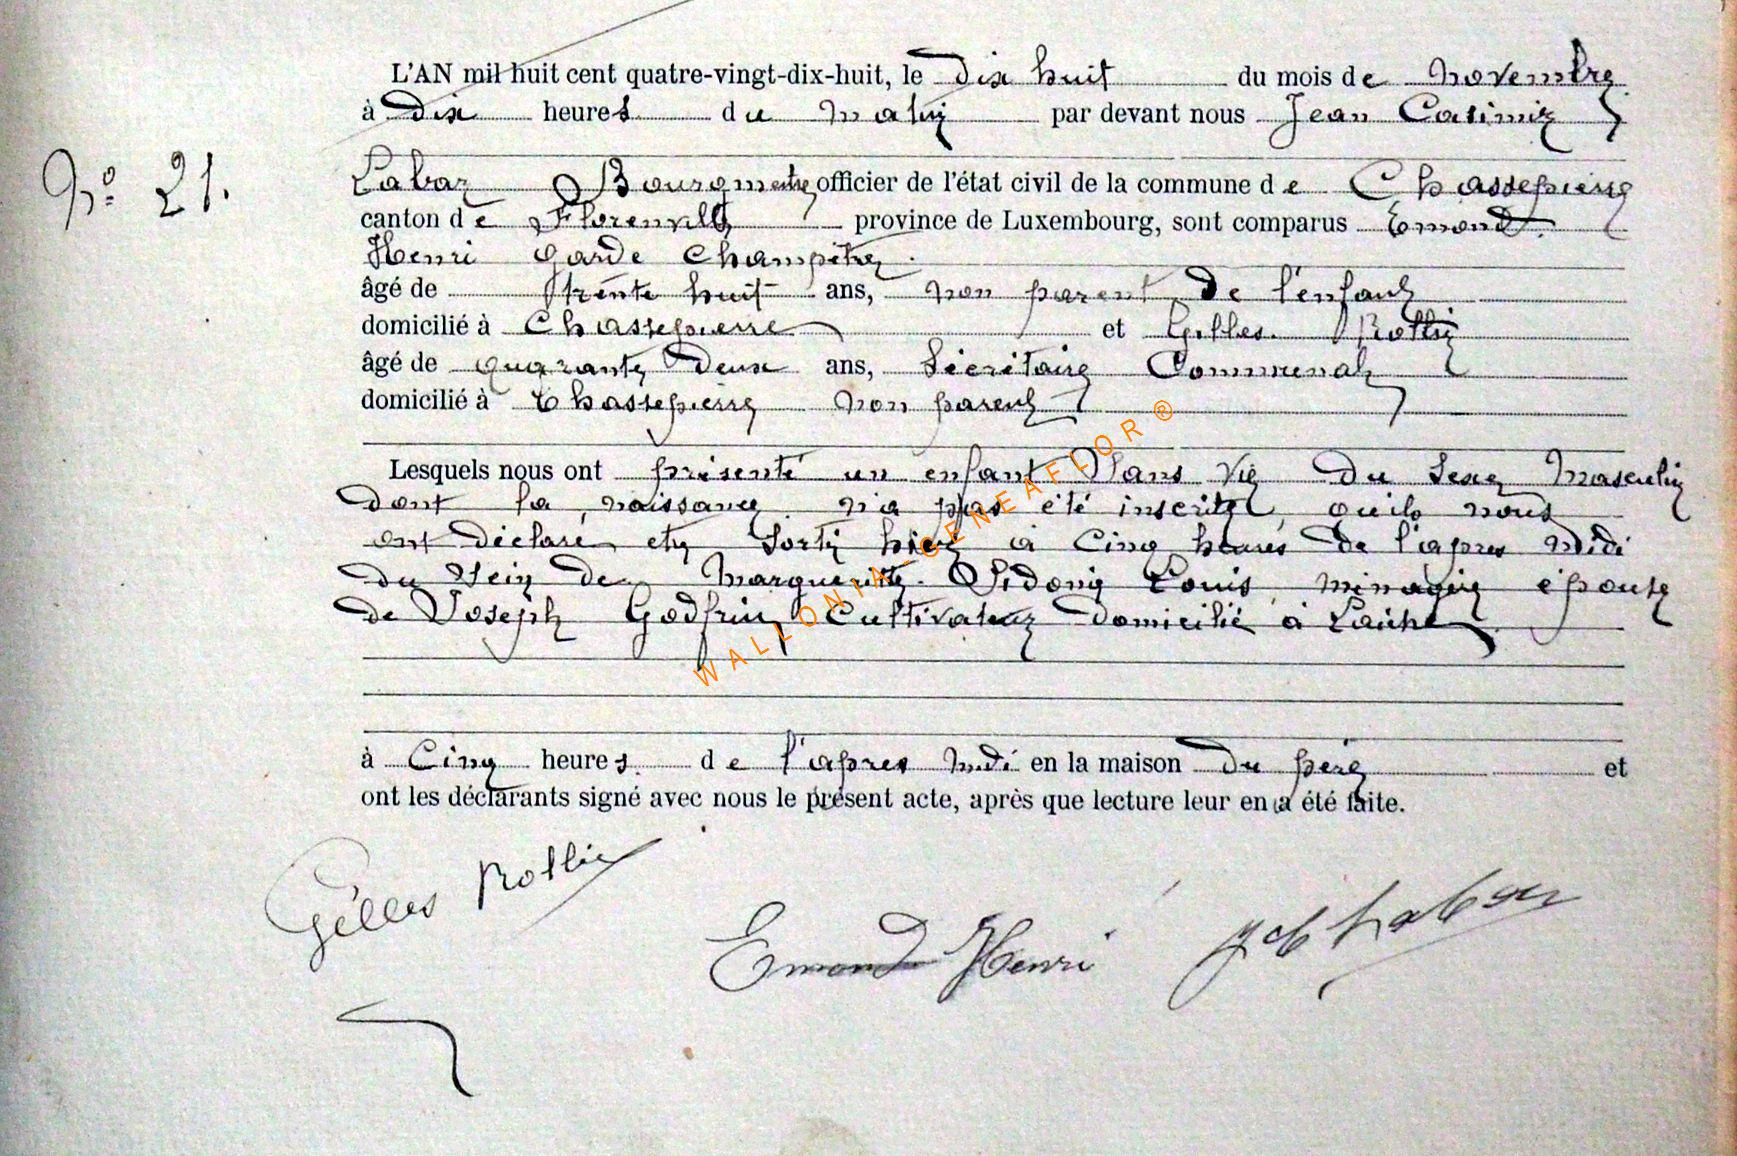 L'AN mil huit cent quatre-vingt-dix-huit, le dix huit du mois de novembre
à dix heures du matin par devant nous Jean Casimir
N° 21.
Labar Bourgmestre officier de l'état civil de la commune de Chassepierre
canton de Florenville province de Luxembourg, sont comparus Emond
Henri garde Champêtre.
âgé de trente huit ans, non parent de l'enfant
domicilié à Chassepierre et Gilles Rollin
âgé de quarante deux ans, Sécrétaire Communal
domicilié à Chassepierre non parent
Lesquels nous ont présenté un enfant sans vie du sexe masculin
dont la naissance n'a pas été inscrite, qu'ils nous
ont déclaré être sorti hier à cinq heures de l'apres midi
du sein de Marguerite Sidonie Louis, ménagère épouse
de Joseph Godfrin cultivateur domicilié à Laiche
à Cinq heures de l'apres midi en la maison du père et
ont les déclarants signé avec nous le présent acte, après que lecture leur en a été faite.
Gilles Rollin
Emond Henri
JCLabar
WALLONIA-GENEAFLOR®